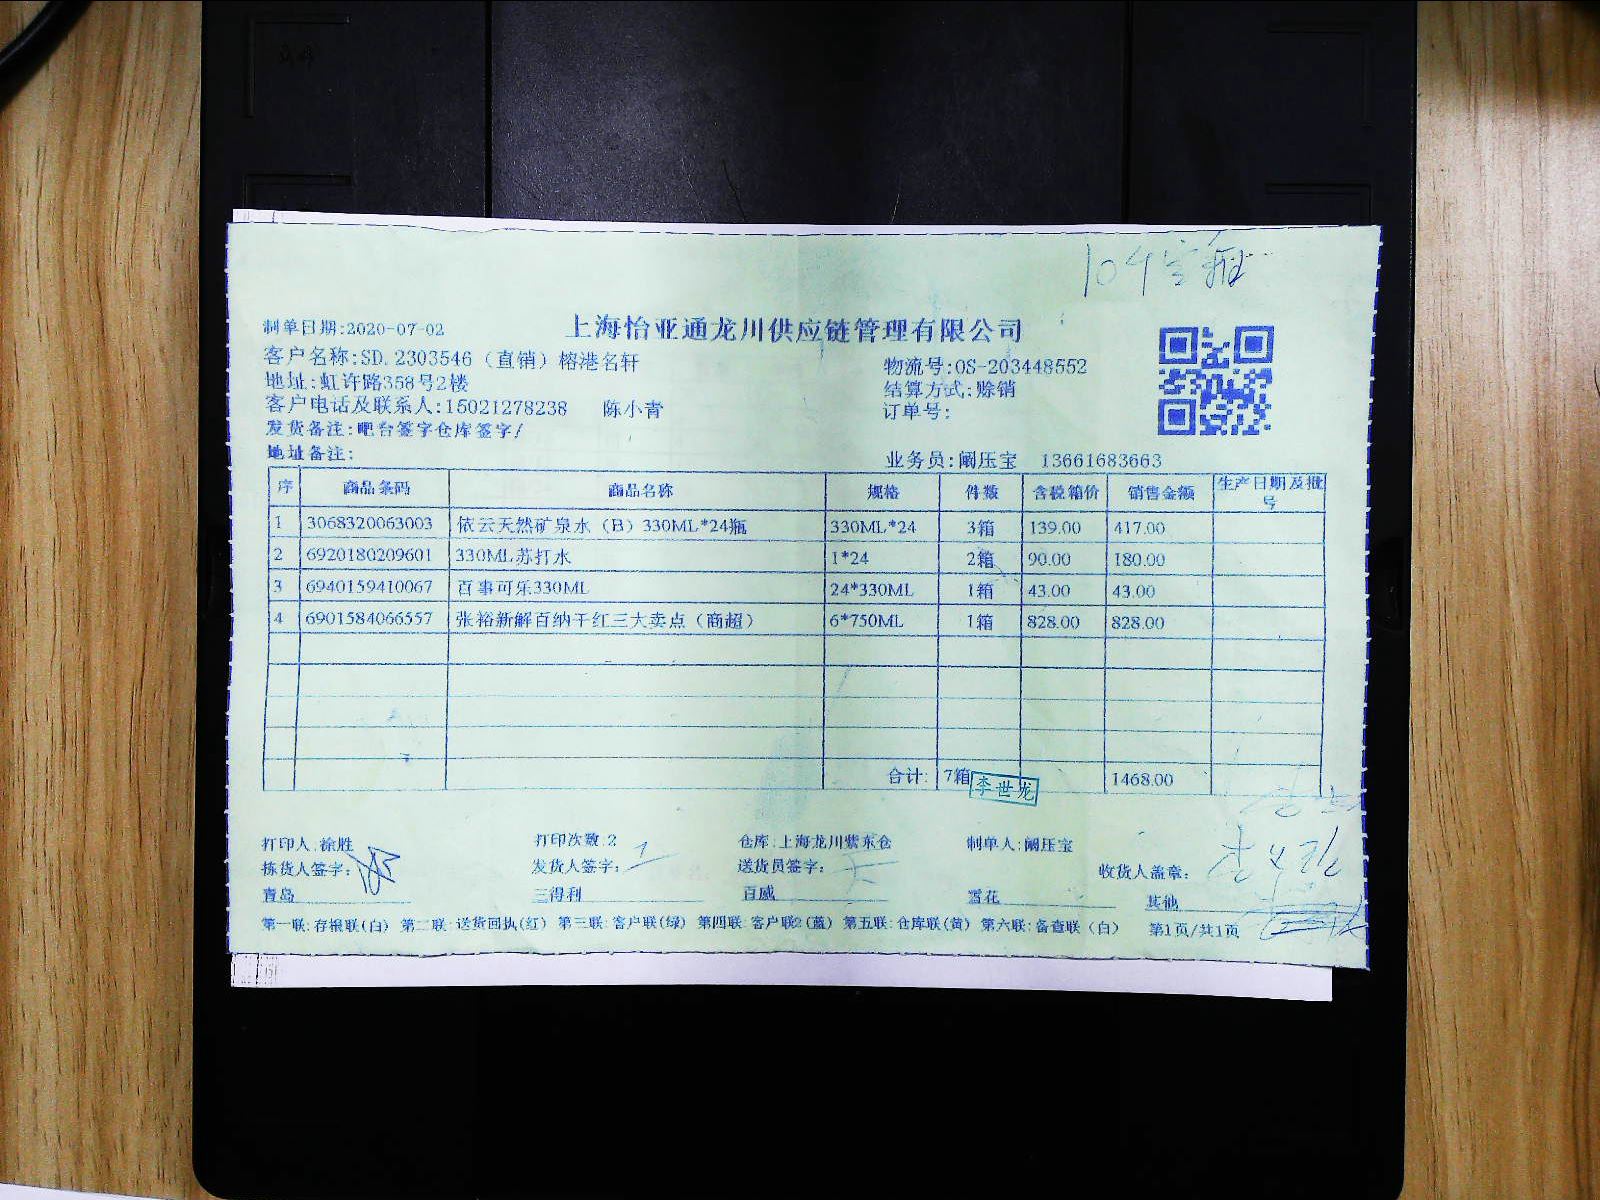 104
制单日期:2020-07-02
上海怡亚通龙川供应链管理有限公司
客户名称:SD.2303546（直销）榕港名轩
物流号:OS-203448552
地址:虹许路358号2楼
结算方式:赊销
客户电话及联系人:15021278238 陈小青
订单号:
发货备注:吧台签字仓库签字/
地址备注:
业务员:阚压宝 13661683663
序 商品条码 商品名称 规格 件数 含税箱价 销售金额 生产日期及批号
1 3068320063003 依云天然矿泉水（B）330ML*24瓶 330ML*24 3箱 139.00 417.00
2 6920180209601 330ML苏打水 1*24 2箱 90.00 180.00
3 6940159410067 百事可乐330ML 24*330ML 1箱 43.00 43.00
4 6901584066557 张裕新解百纳干红三大卖点（商超） 6*750ML 1箱 828.00 828.00
合计: 7箱 1468.00
李世龙
打印人:徐胜 打印次数:2 仓库:上海龙川紫东仓 制单人:阚压宝
拣货人签字: 发货人签字: 送货员签字: 收货人盖章:
青岛 三得利 百威 雪花 其他
第一联:存根联(白) 第二联:送货回执(红) 第三联:客户联(绿) 第四联:客户联2(蓝) 第五联:仓库联(黄) 第六联:备查联（白） 第1页/共1页